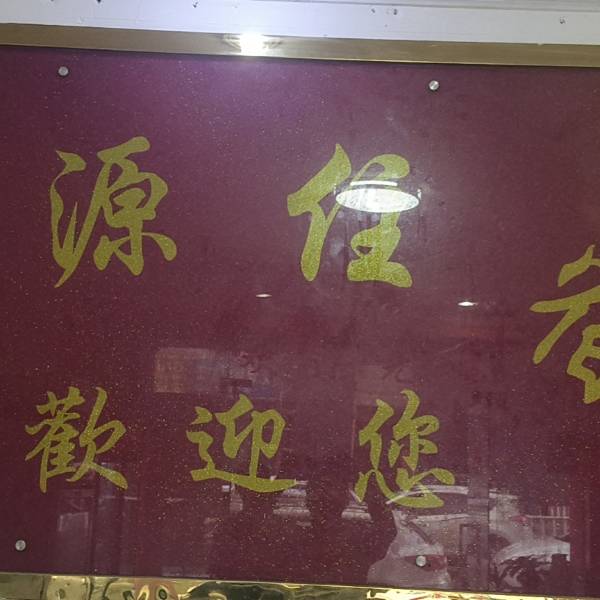 源任
歡迎您